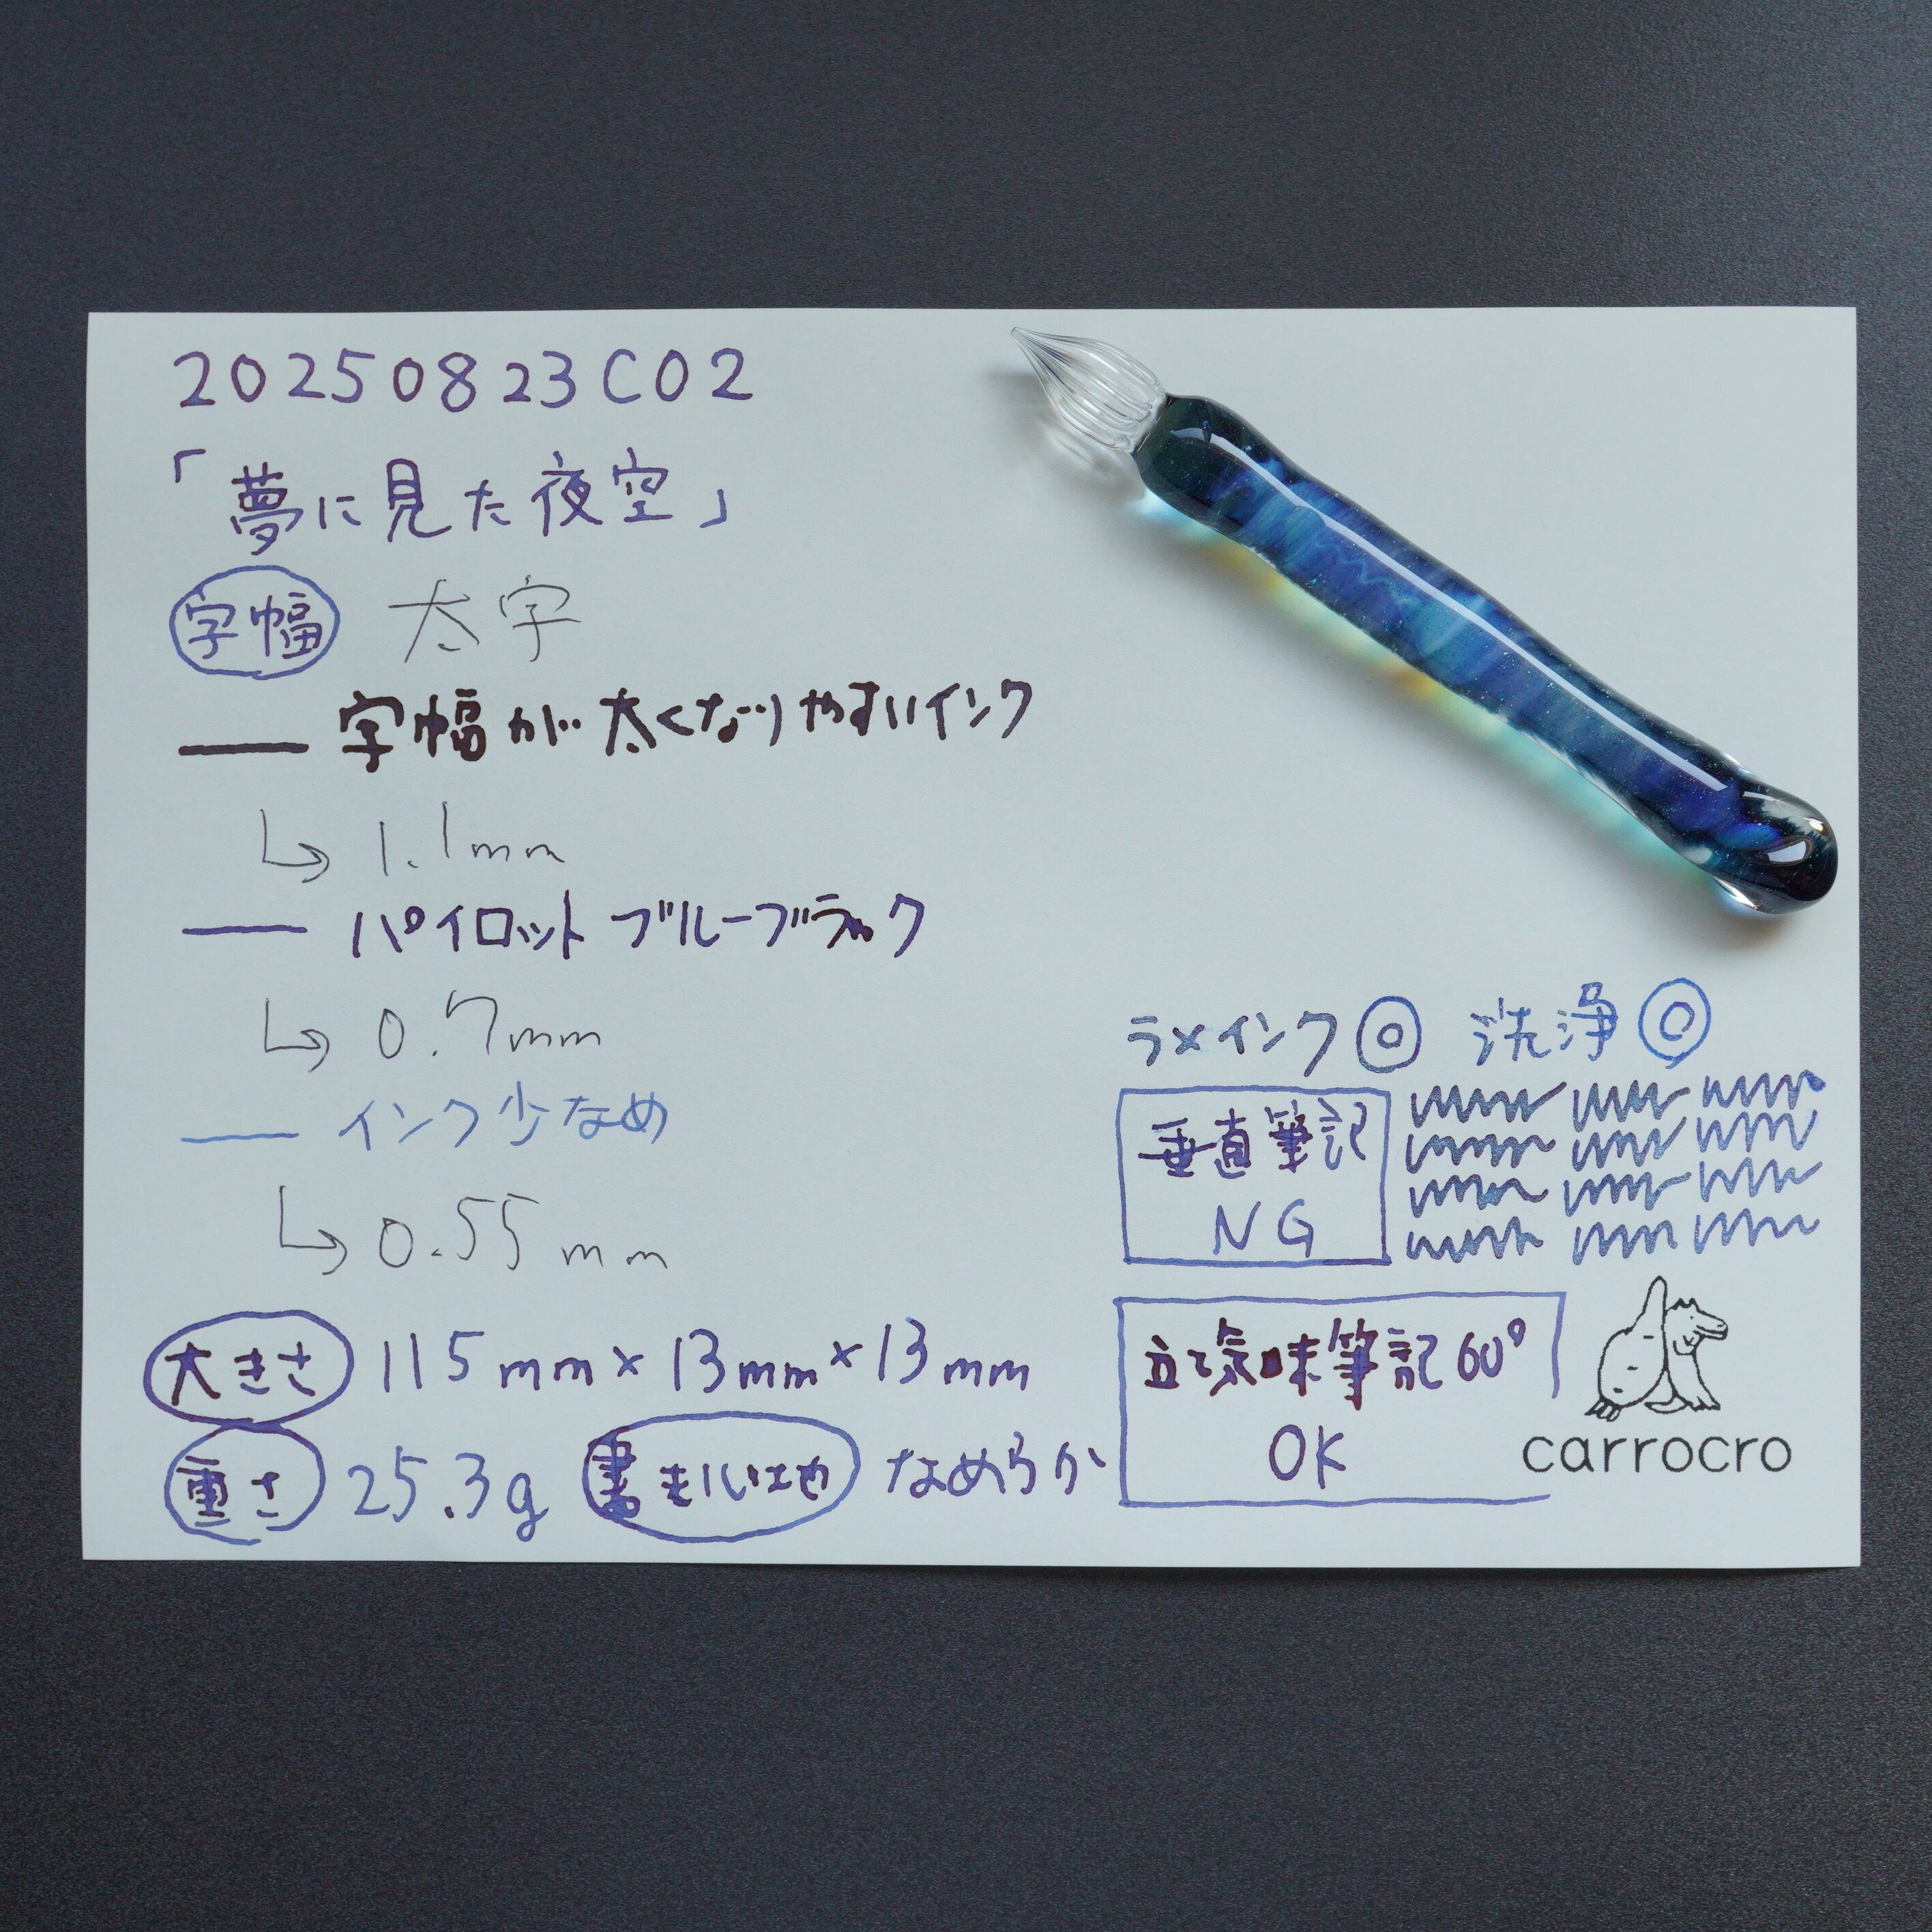 20250823C02
「夢に見た夜空」
字幅 太字
字幅が太くなりやすいインク
1.1mm
パイロットブルーブラック
0.7mm
インク少なめ
0.55mm
大きさ 115mm×13mm×13mm
重さ 25.3g 書き心地 なめらか
ラメインク◎ 洗浄◎
垂直筆記
NG
立て気味筆記60°
OK
carrocro